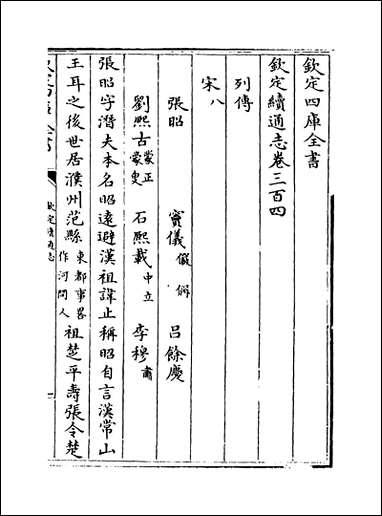 欽定四庫全書
欽定續通志卷三百四
列傳
宋八
張昭 竇儀儼 侢 呂餘慶
劉熙古蒙正 蒙叟 石熙載中立 李穆肅
張昭字潛夫本名昭遠避漢祖諱止稱昭自言漢常山
王耳之後世居濮州范縣東都事畧作河間人祖楚平壽張令楚
欽定續通志